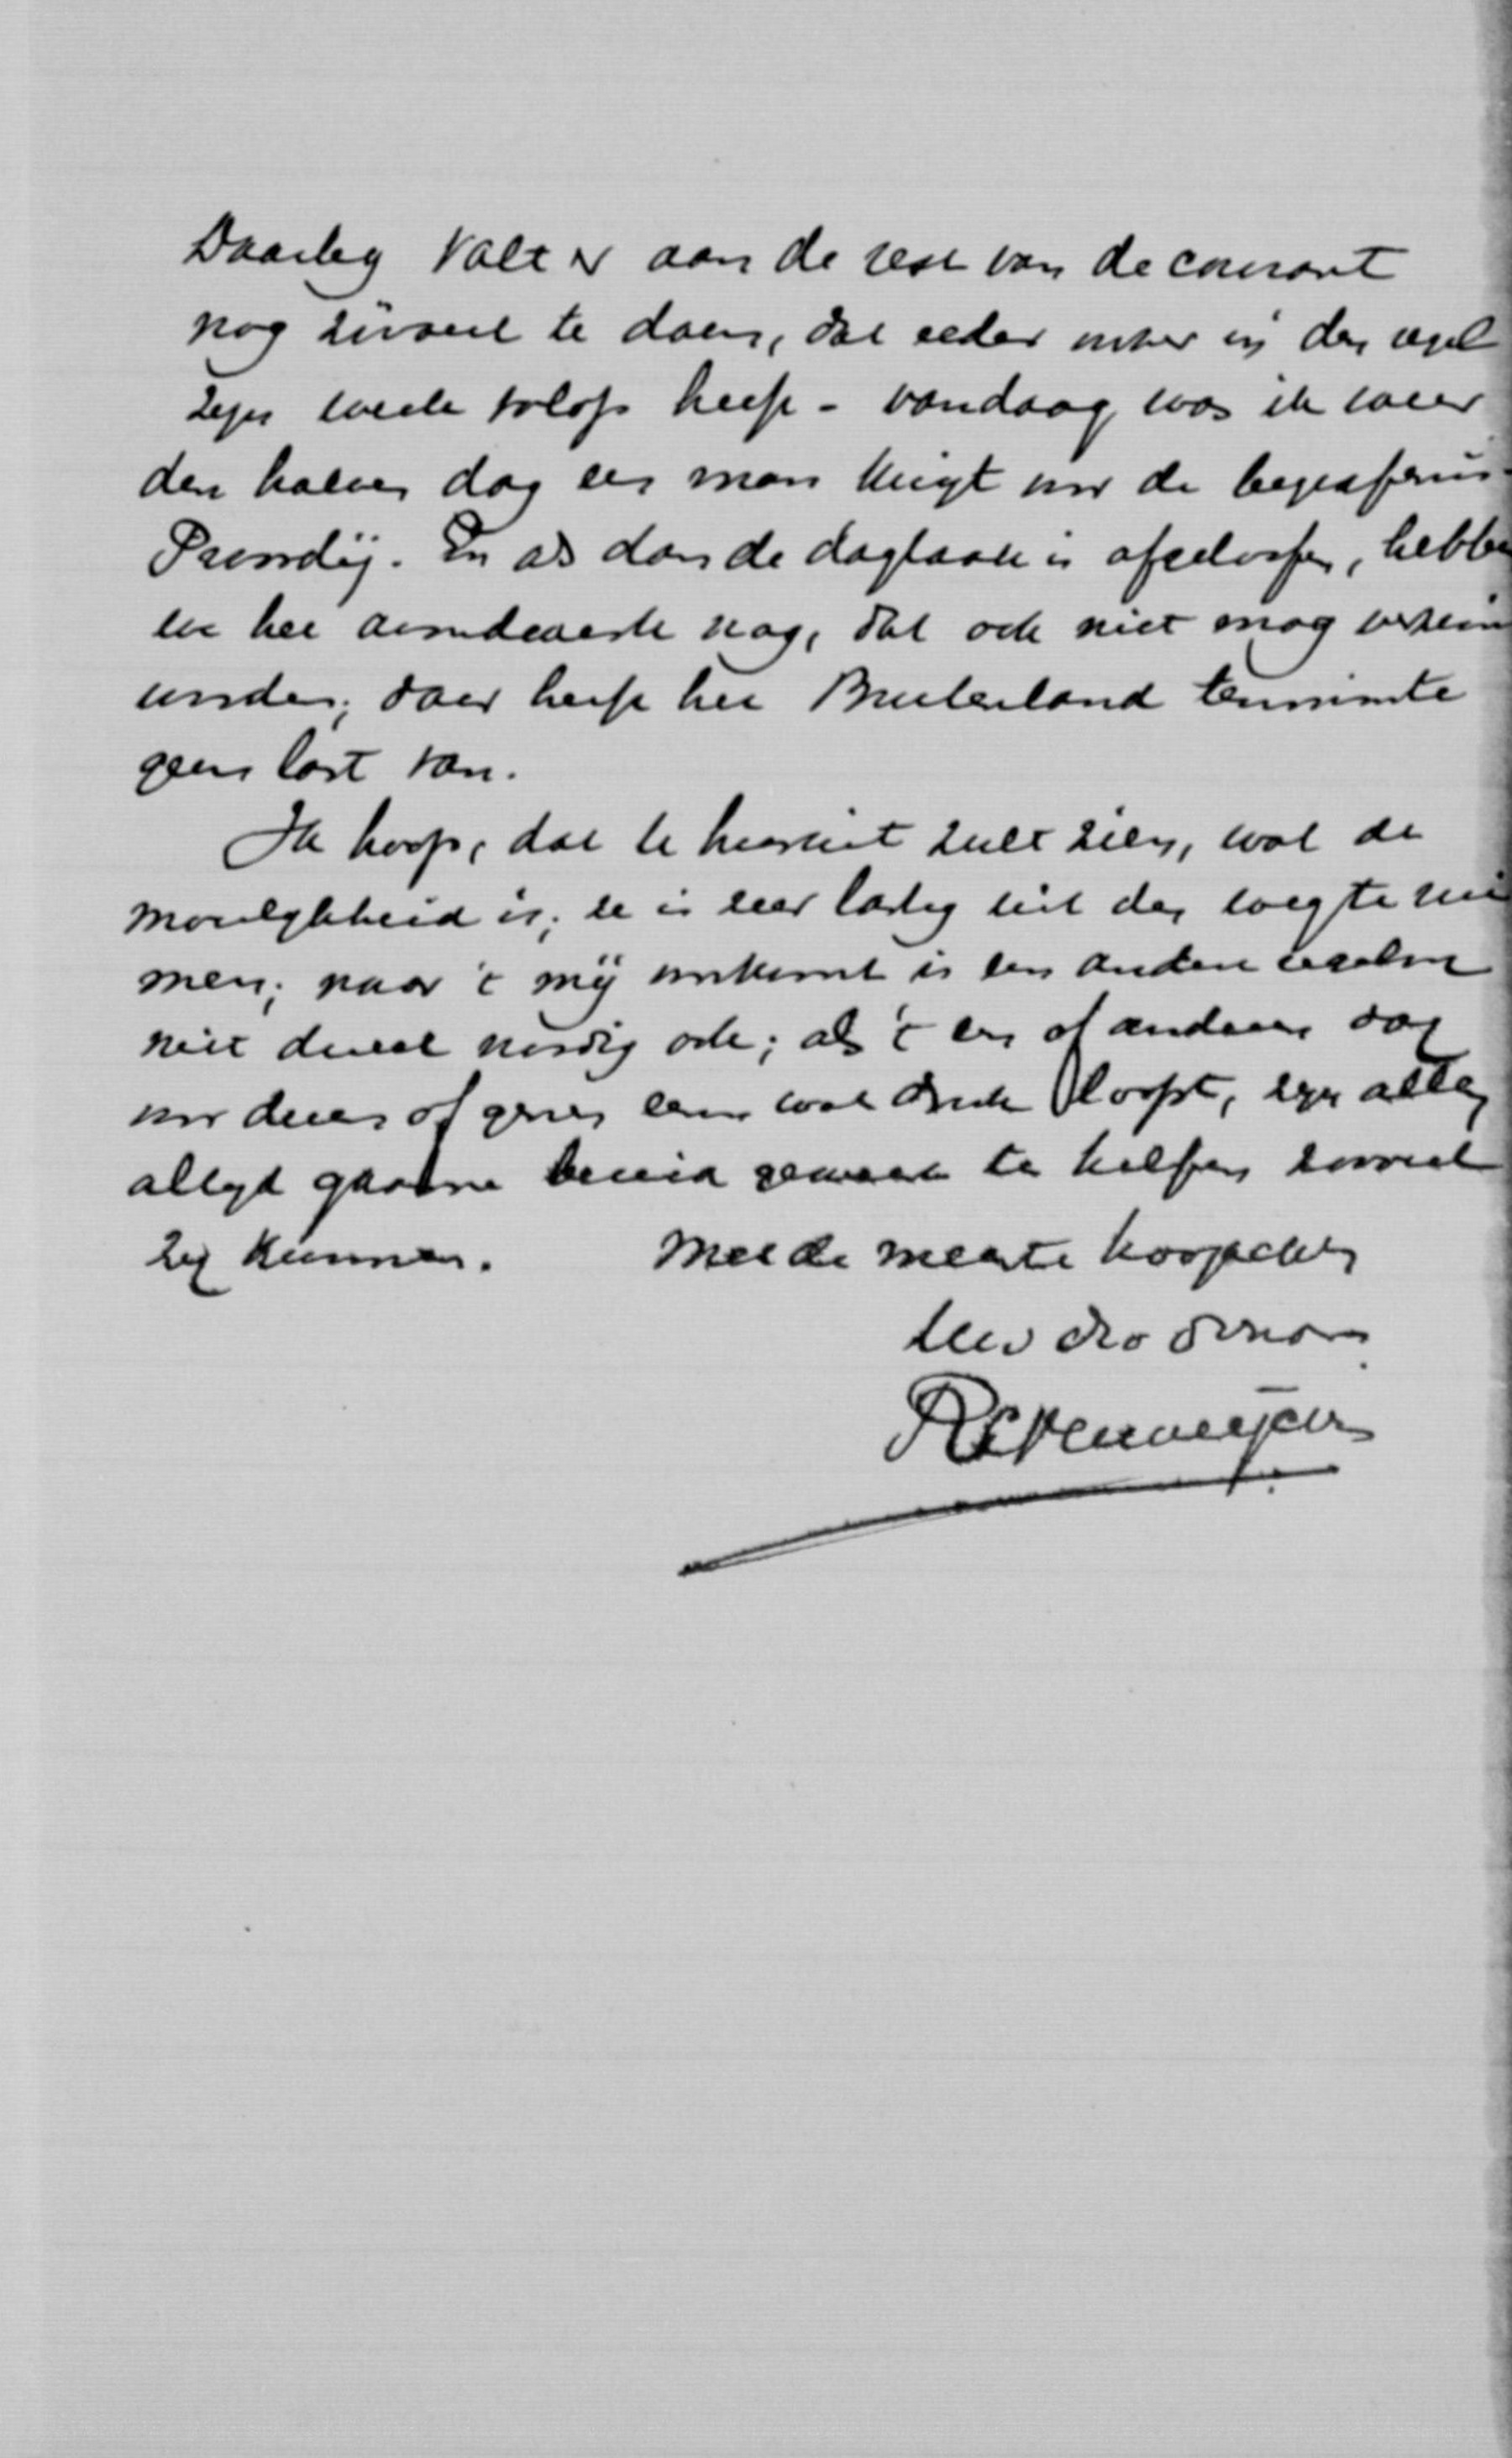 Daarbij valt er aan de rest van de courant
nog zooveel te doen, dat ieder onzer in den regel
zijn werk volop heeft - vandaag was ik weer
den halven dag een man kwijt voor de begrafenis-
En als dan de dagtaak is afgeloopen, hebben
we het avondwerk nog, dat ook niet mag
worden; daar heeft het Buitenland tenminste
geen last van.
Ik hoop, dat U hieruit zult zien, wat de
moeilijkheid is; er is zeer lastig uit den weg te
men; naar 't mij voorkomt is een andere
niet noodig ook; als 't een of anderen dag
voor dezen of genen eens wat druk loopt, zijn allen
altijd gaarne bereid geweest te helpen zooveel
zij kunnen. Met de meeste hoogachting
Uw dw dienaar